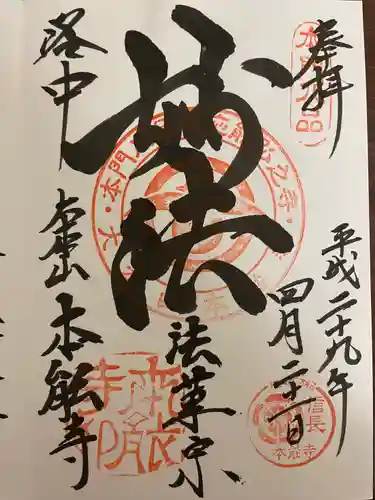 奉拝
平成二十九年
四月二十一日
妙法
法華宗
洛中
大本山
本能寺
信長
本能寺